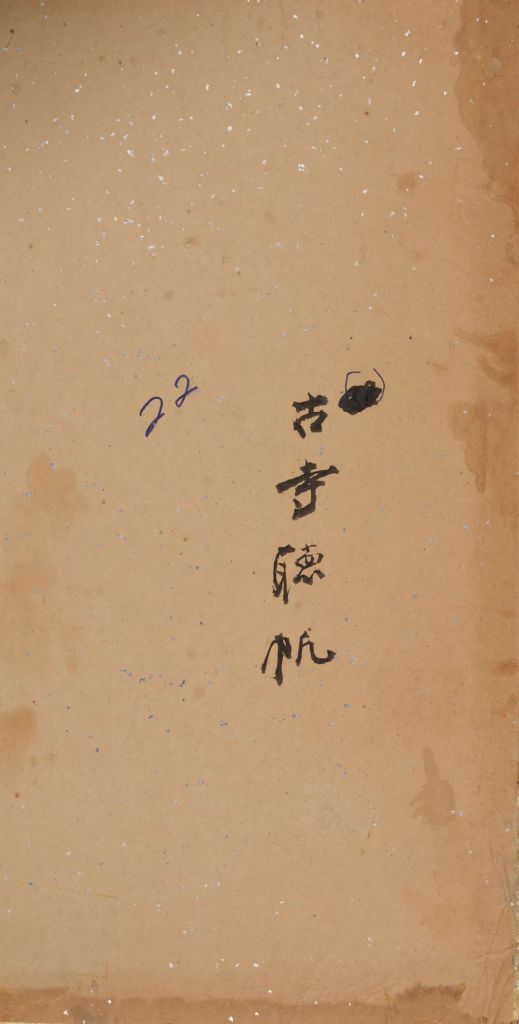 古寺聴帆
22